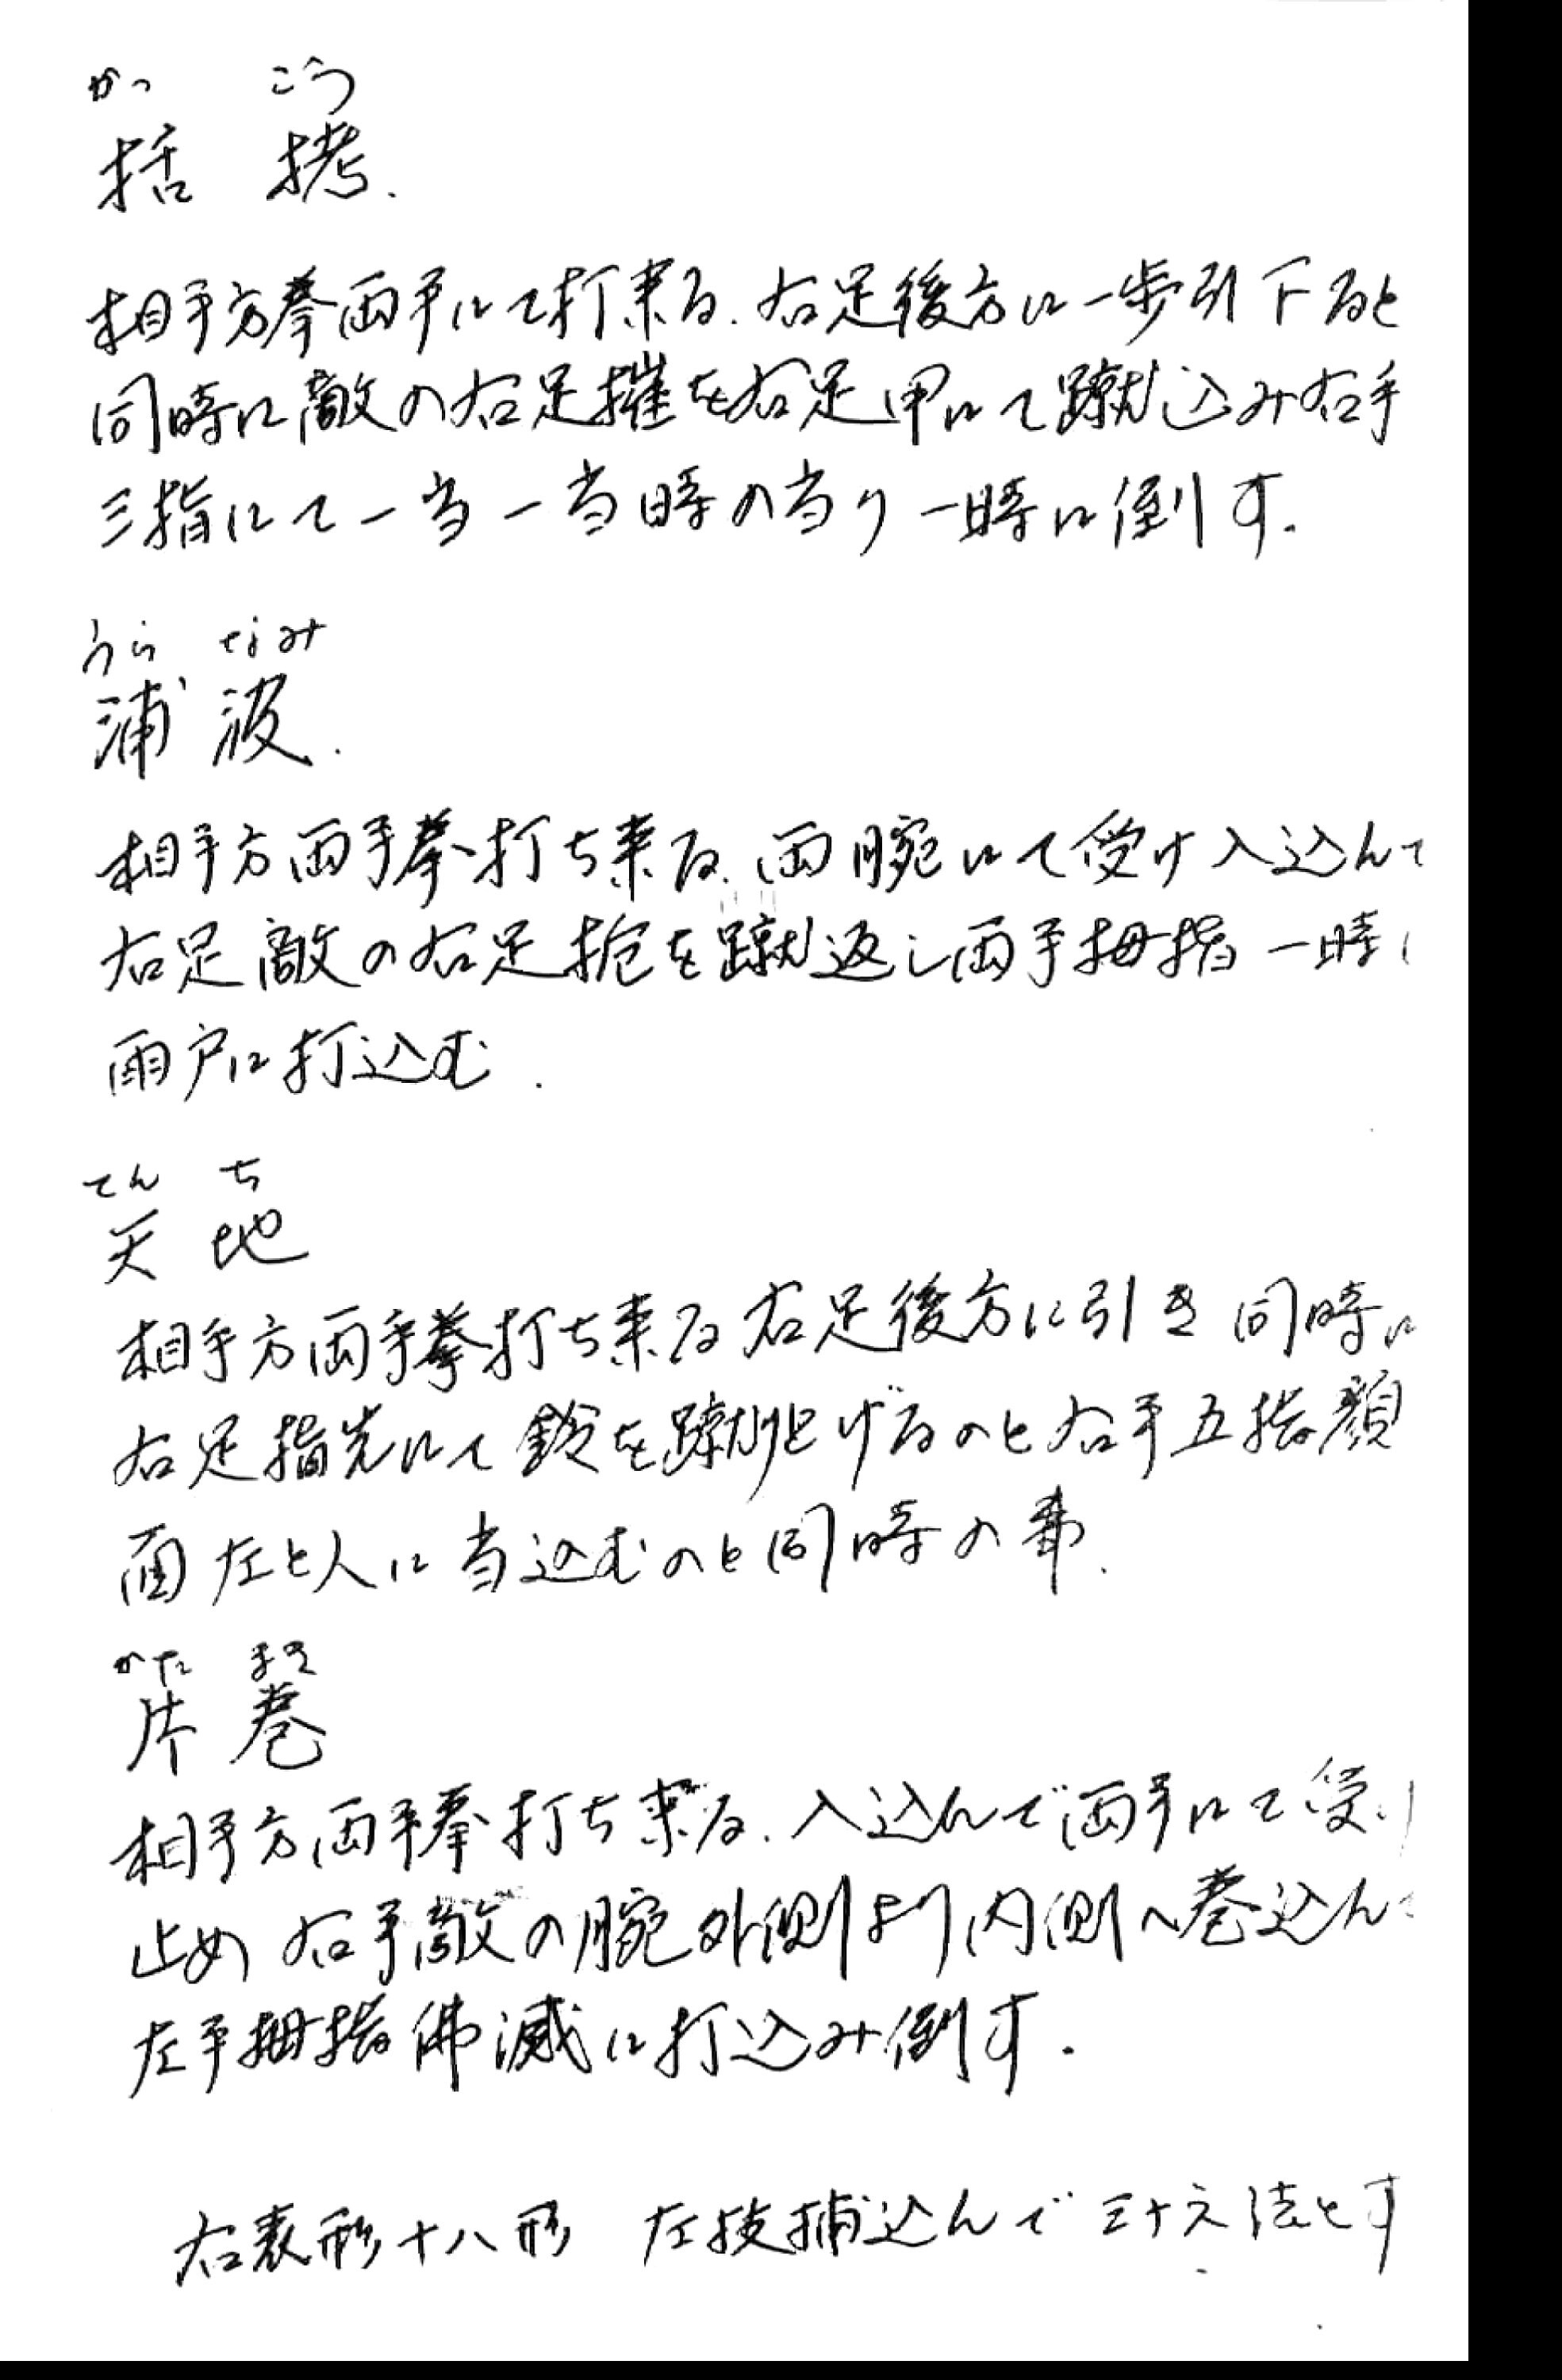 かっ こう
括 拷.
相手方拳両手にて打来る. 右足後方に一歩引下ると
同時に敵の右足摧を右足甲にて蹴込み右手
三指にて一当一当時の当り一時に倒す.
うら なみ
浦 波.
相手方両手拳打ち来る. 両腕にて受け入込んで
右足敵の右足を蹴返し両手拇指一時に
雨戸に打込む.
てん ち
天 地
相手方両手拳打ち来る右足後方に引き同時に
右足指先にて鈴を蹴上げるのと右手五指顔
面左と人に当込むのと同時の事.
かた まき
片 巻
相手方両手拳打ち来る. 入込んで両手にて受け
止め右手敵の腕外側より内側へ巻込ん
左手拇指佛滅に打込み倒す.
右表形十八形 左技捕込んで三十六法とす